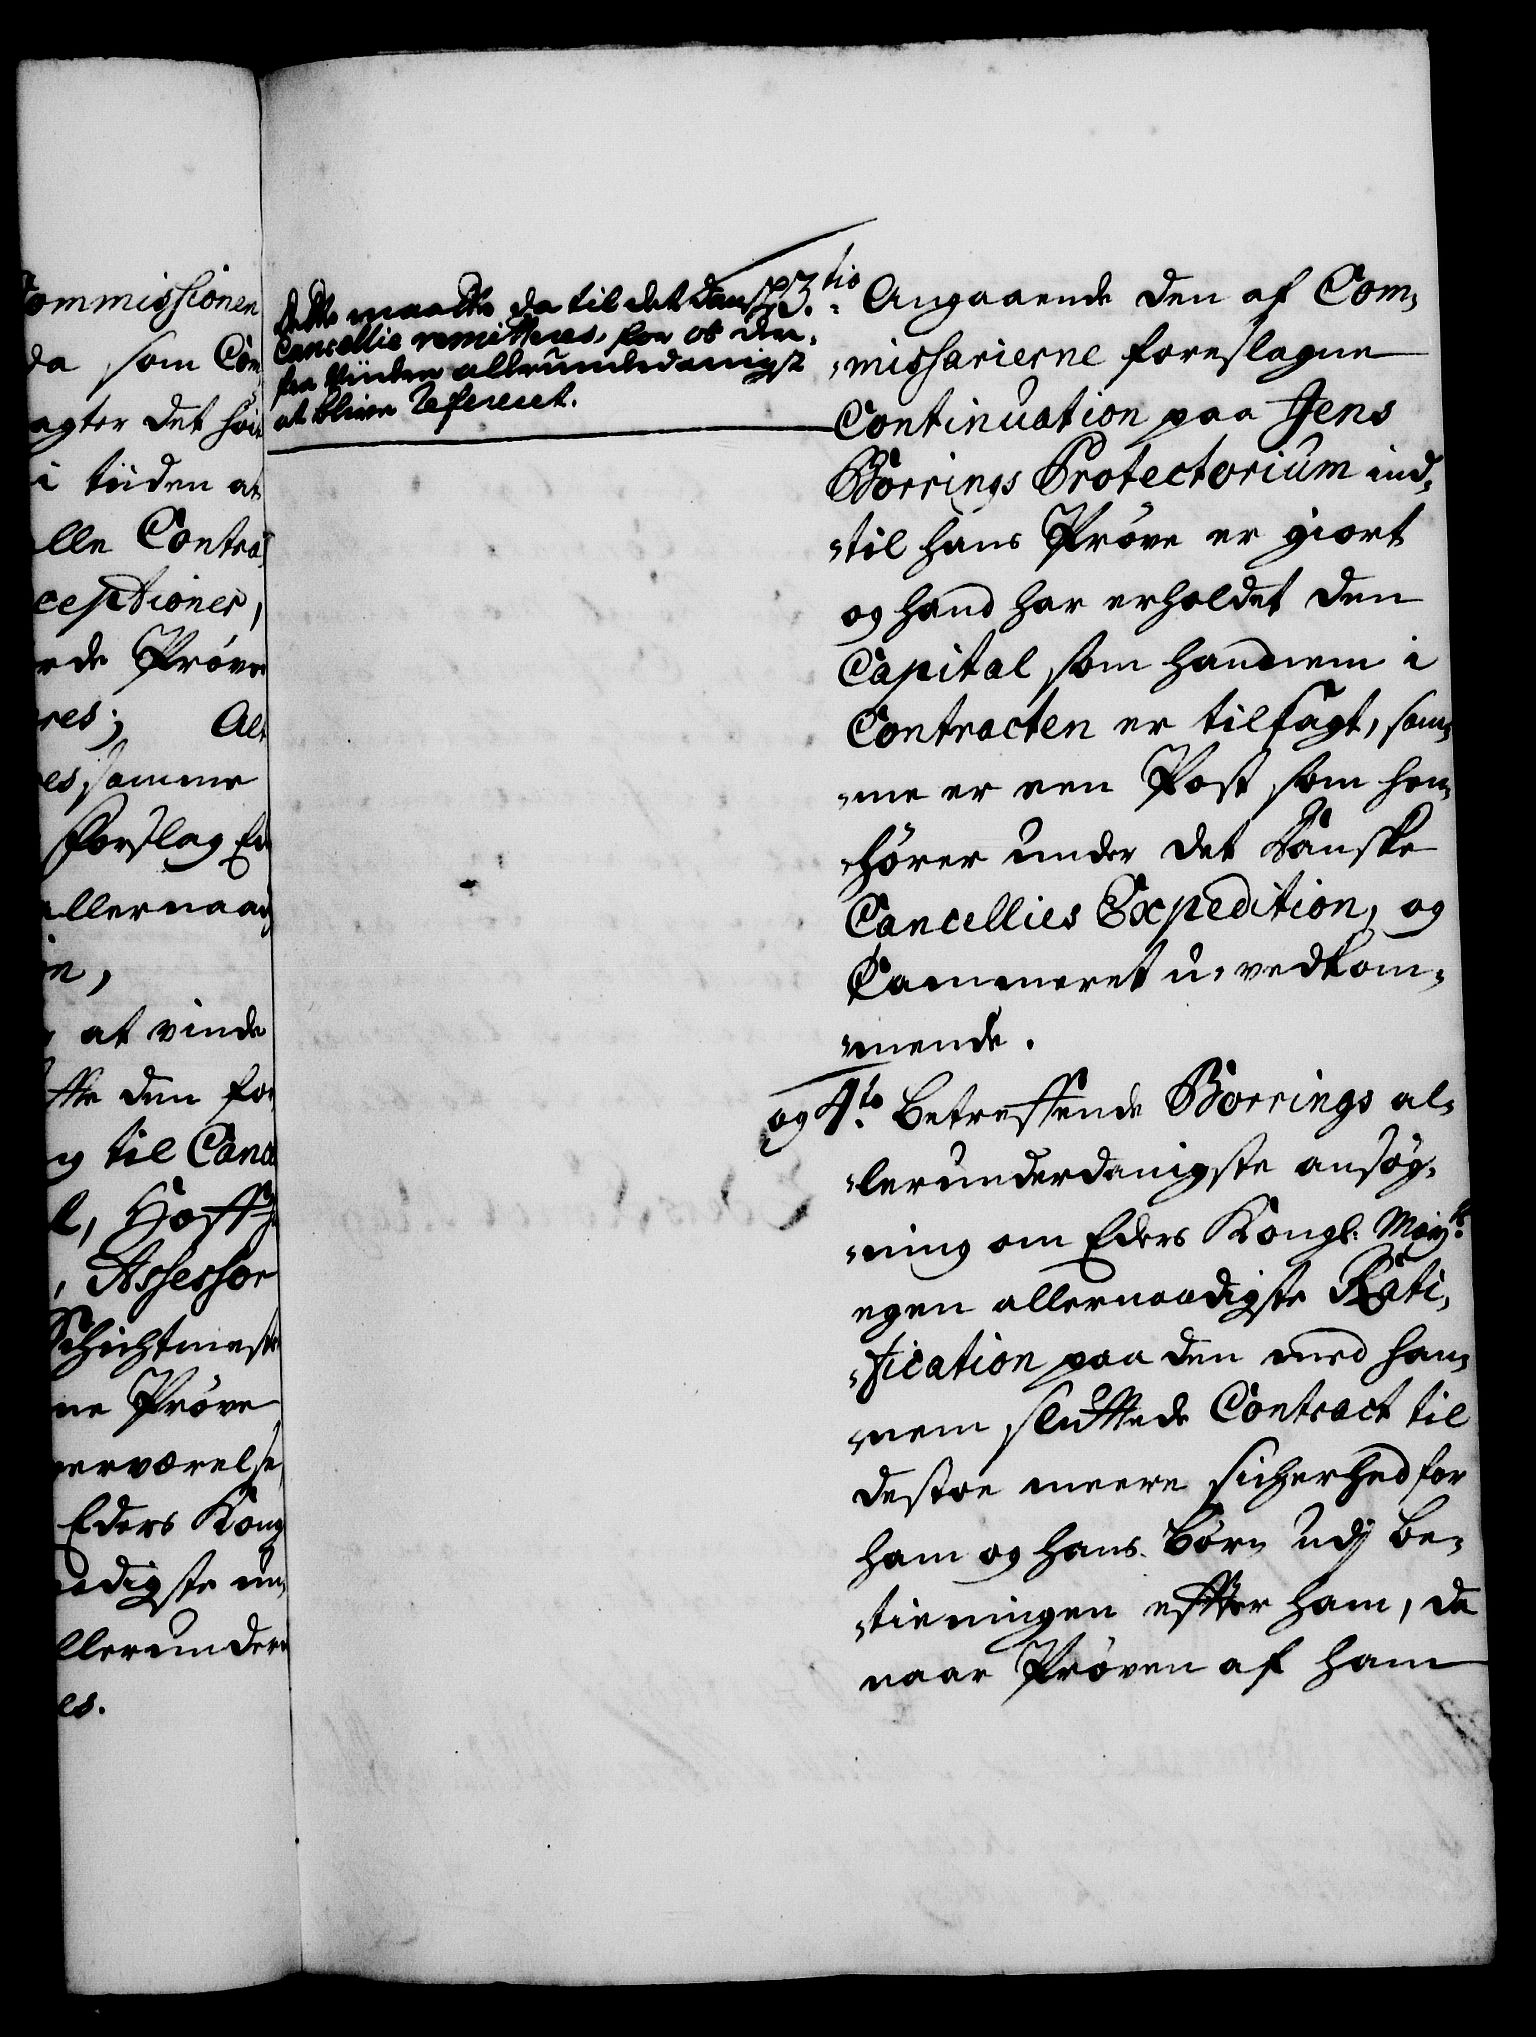 ommissionen
da som Com
agter det höi
i tiiden at
lle Contra
ceptioner,
rde Pröve
res; Alt
es samme
Forslag Ed
allernaad
at vinde
den for
g til Canc
l, Hoff
, Assessor
Schichtmest
ne Pröve
erværelse,
Eders Kong
aadigste
llerunder
es.
Dette maatte da til det Danske
Cancellie remitteres, for at der
fra Viidere allerunderdanigst
at blive Refereret.
3tio. Angaaende den af Com-
-missarierne foreslagne
Continuation paa Jens
Borrings Protectorium ind-
-til hans Pröve er giort
og hand har erholdet den
Capital som hannem i
Contracten er tilsagt, sam-
-me er een Post som hen-
-hörer under det Danske
Cancellies Expedition, og
Cammeret u-vedkom-
-mende.
og 4to. Betreffende Borrings al-
-lerunderdanigste ansög-
-ning om Eders Kongl. Mayts.
egen allernaadigste Rati-
-fication paa den med han-
-nem sluttede Contract til
destoe meere sicherhed for
ham og hans Börn udj be-
-tieningen effter ham, da
naar Pröven af ham